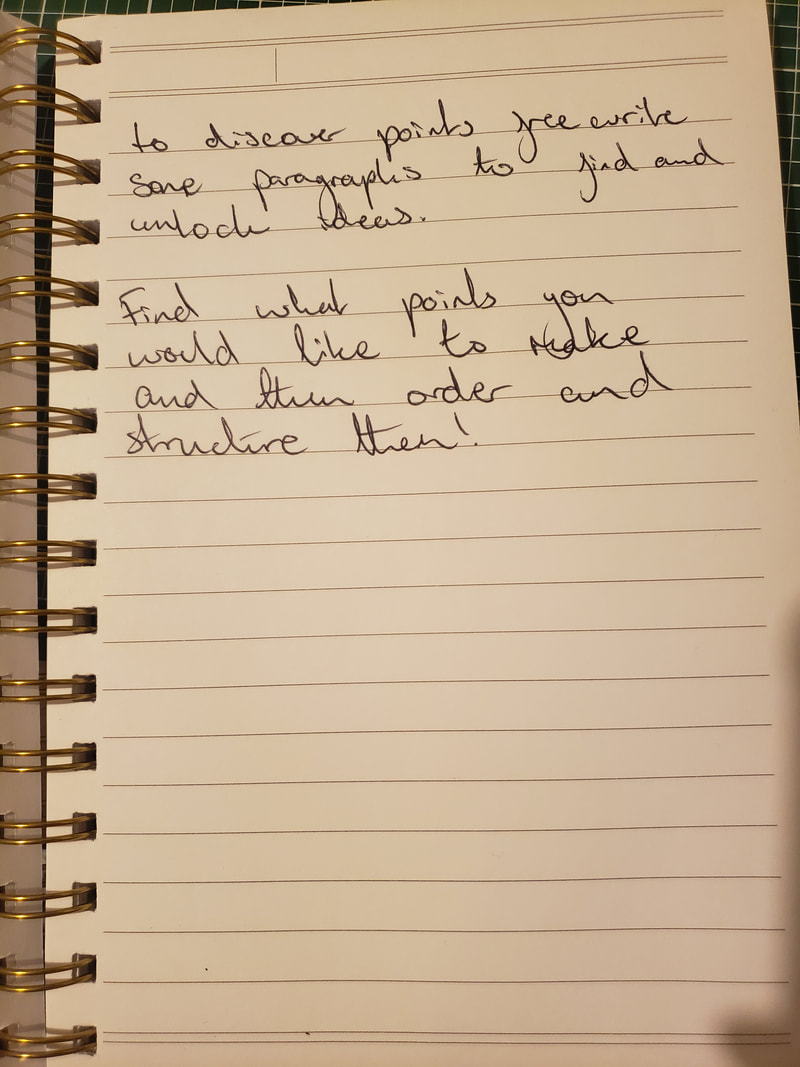 to discover points free write
some paragraphs to find and
unlock ideas.
Find what points you
would like to make
and then order and
structure them!